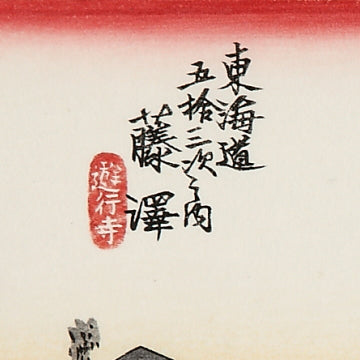 東海道
五拾三次之内
藤澤
遊行寺